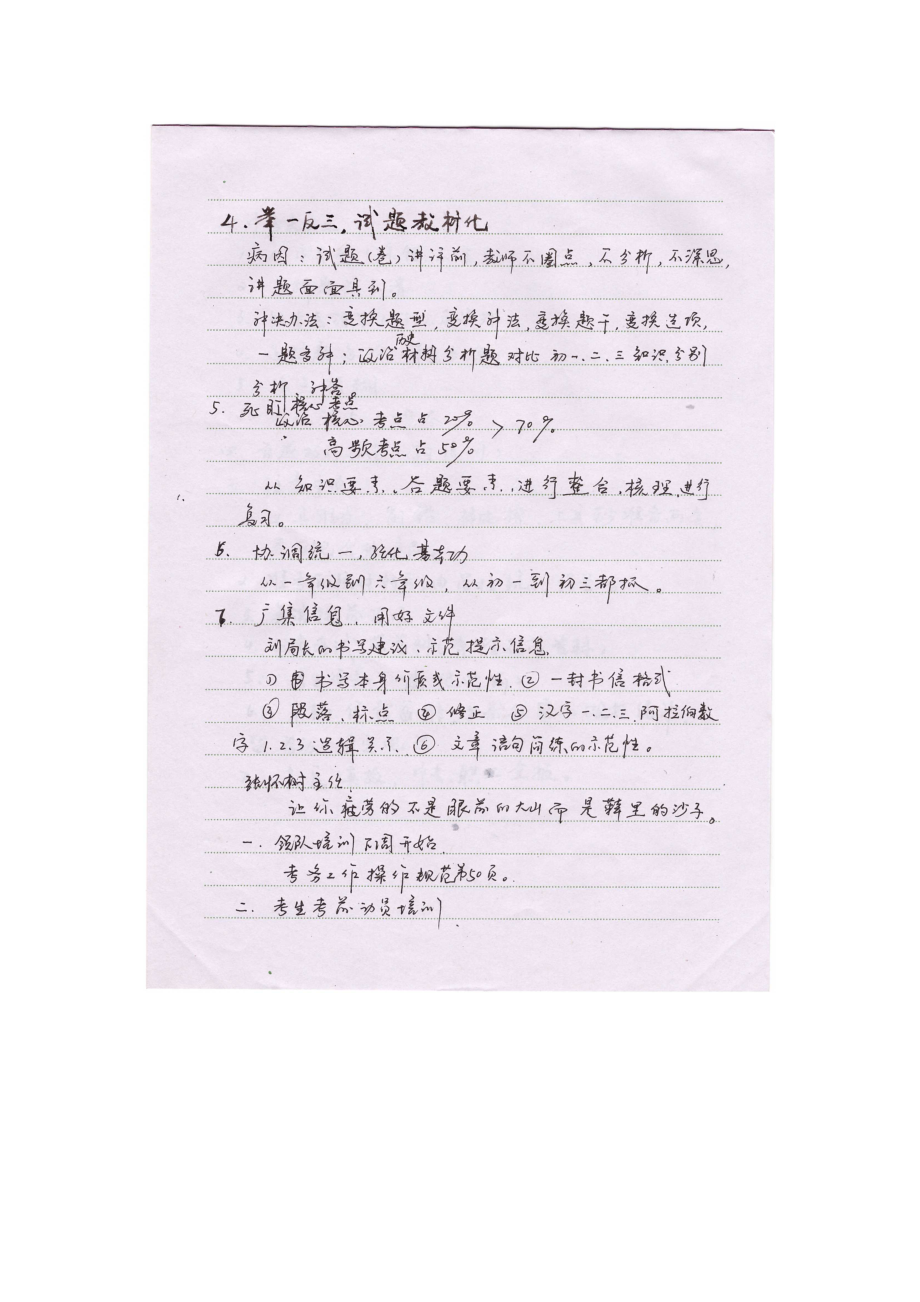 4、举一反三,试题教材化
病因:试题(卷)讲评前,教师不圈点,不分析,不深思,
讲题面面具到。
解决办法:变换题型,变换解法,变换题干,变换选项,
历史
一题多解;政治材料分析题对比初一、二、三知识分别
分析 解答
5、死盯核心考点
政治核心考点占20% > 70%
高频考点占50%
从知识要素、答题要素,进行整合,梳理,进行
复习。
6、协调统一,强化基本功
从一年级到六年级,从初一到初三都抓。
7、广集信息、用好文件
刘局长的书写建议、示范提示信息,
① 书写本身价值或示范性、② 一封书信格式
③ 段落、标点 ④ 修正 ⑤ 汉字一、二、三、阿拉伯数
字1、2、3逻辑关系、⑥ 文章语句简练的示范性。
张怀树主任:
让你疲劳的不是眼前的大山而是鞋里的沙子。
一、领队培训下周开始
考务工作操作规范第50页。
二、考生考前动员培训